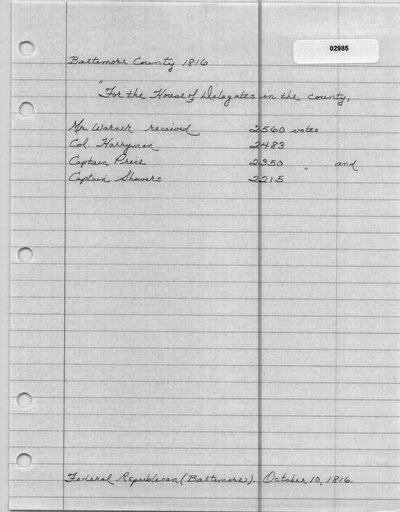 02985
Baltimore County 1816
"For the House of Delegates in the county,
Mr Warner received 2560 votes
Col. Harryman 2483
Captain Price 2350 " and
Captain Showers 2215
Federal Republican (Baltimore). October 10, 1816.